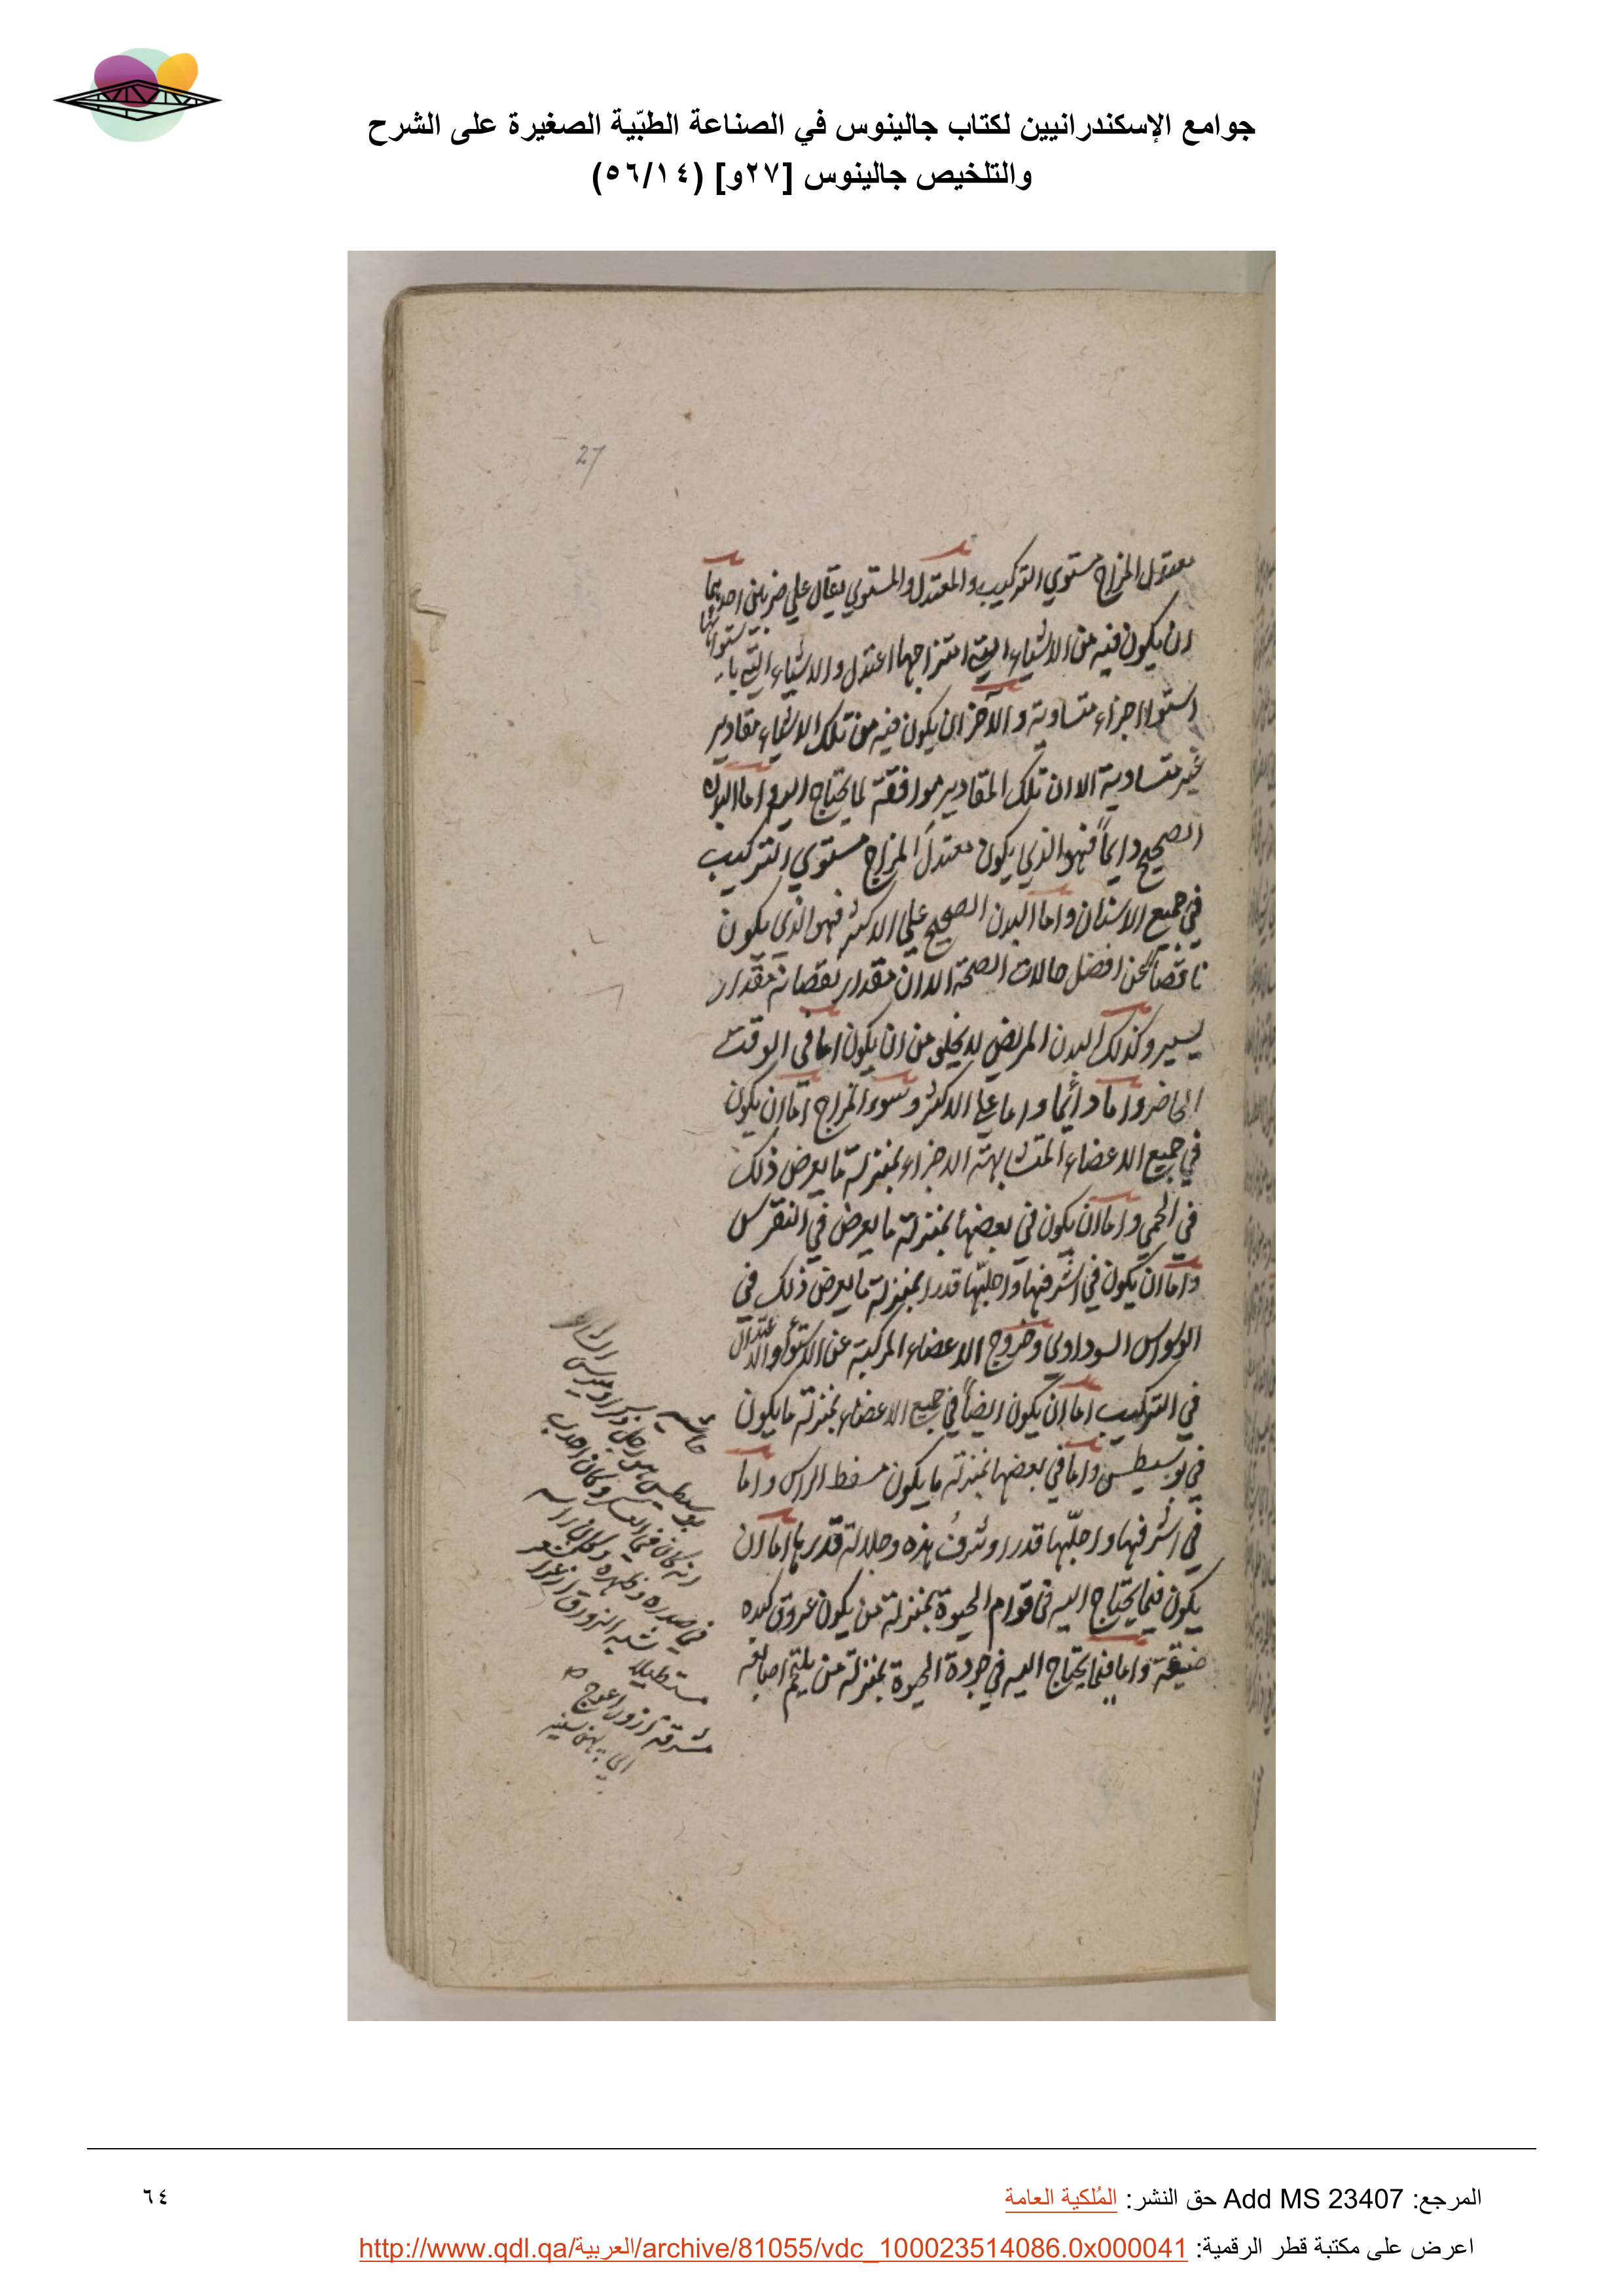 جوامع الإسكندرانيين لكتاب جالينوس في الصناعة الطبّية الصغيرة على الشرح
والتلخيص جالينوس [٢٧و] (٥٦/١٤)
27
معتدل المزاج مستوي التركيب والمعتدل والمستوي يقال علي ضربين احدهما
ان يكون فيه من الاشياء التي امتزاجها اعتدل والاشياء التي باستوائها
استوا اجزاء متساوية والآخر ان يكون فيه من تلك الاشياء مقادير
غير متساوية الا ان تلك المقادير موافقة لما يحتاج اليه واما البدن
الصحيح دايماً فهو الذي يكون معتدل المزاج مستوي التركيب
في جميع الاسنان واما البدن الصحيح علي الاكثر فهو الذي يكون
ناقصاً عن افضل حالات الصحة الا ان مقدار نقصانه مقدار
يسير وكذلك البدن المريض لا يخلو من ان يكون اما في الوقت
الحاضر واما دائما واما علي الاكثر وسوء المزاج اما ان يكون
في جميع الاعضاء المتشابهة الاجزاء بمنزلة ما يعرض ذلك
في الحمي واما ان يكون في بعضها بمنزلة ما يعرض في النقرس
واما ان يكون في اشرفها واجلّها قدرا بمنزلة ما يعرض ذلك في
الوسواس السوداوي وخروج الاعضاء المركبة عن الاستواء والاعتدال
في التركيب اما ان يكون ايضاً في جميع الاعضاء بمنزلة ما يكون
في بوسيطس واما في بعضها بمنزلة ما يكون مسفط الراس واما
في اشرفها واجلّها قدرا وشرف هذه وجلالة قدرها اما ان
يكون فيما يحتاج اليه في قوام الحيوة بمنزلة من يكون عروق كبده
ضيقة واما فيما يحتاج اليه في جودة الحيوة بمنزلة من يلتحم اصابعه
حاشيه
بوسيطس هو رجل ذكر اوميرس الشاعر
انه كان في العسكر وكان احدب
في صدره وظهره وكان راسه
مستطيلا شبه الزورق ازعر الشعر
اعوج
المرجع: Add MS 23407 حق النشر: المُلكية العامة
٦٤
اعرض على مكتبة قطر الرقمية: http://www.qdl.qa/العربية/archive/81055/vdc_100023514086.0x000041